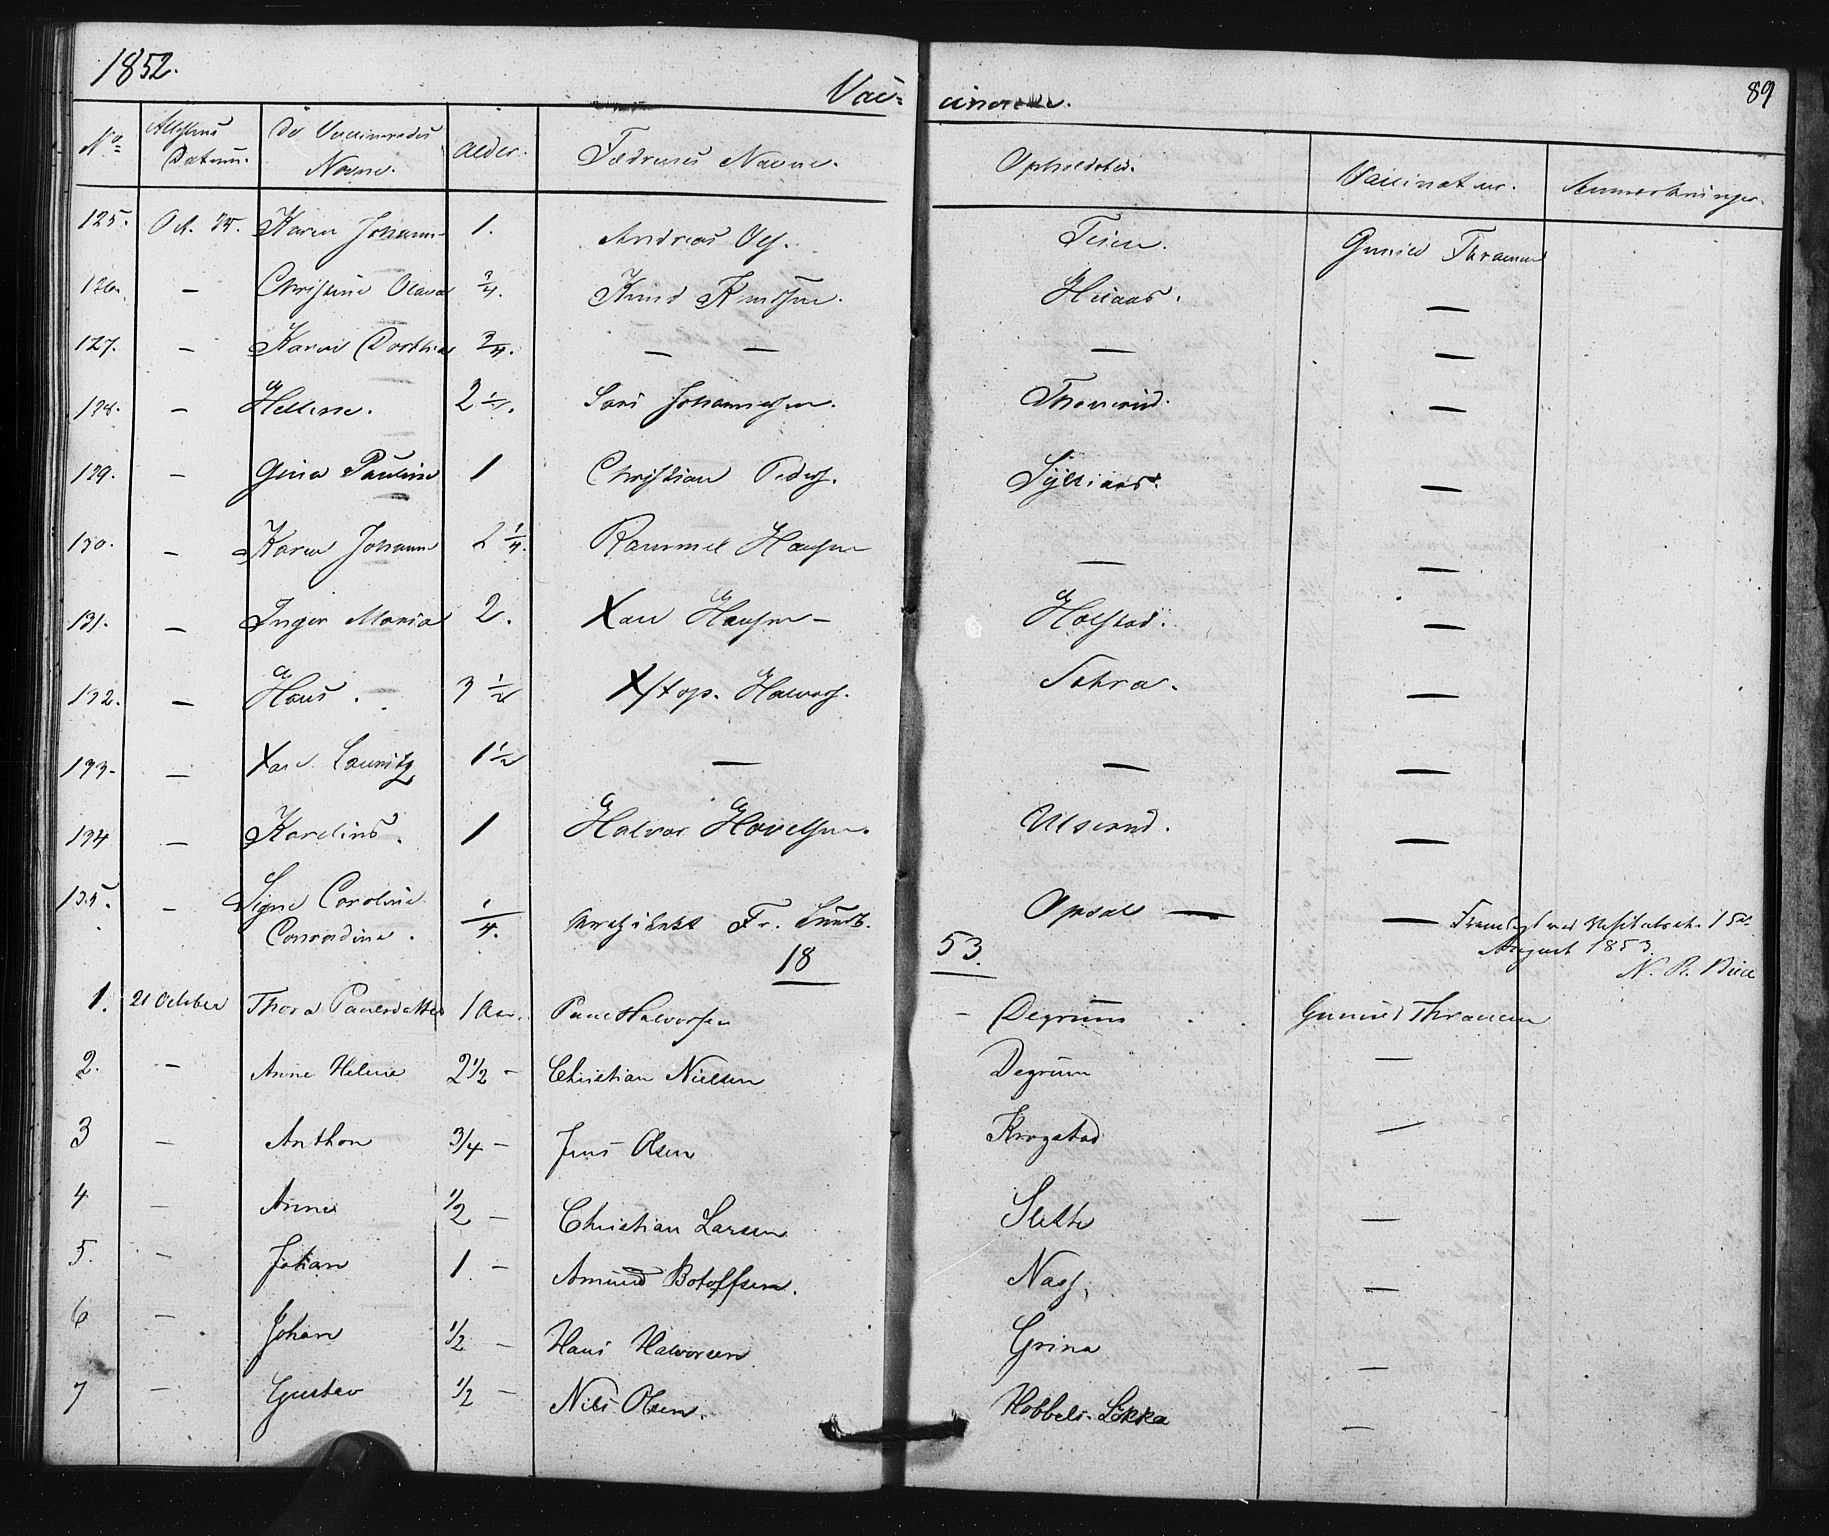 1852.
Vac= cinerede. 89
No Attestens Datum. De Vaccineredes Navne. Alder. Fædrenes Navne. Opholdsted. Vaccinateur. Anmerkninger.
125. Oct. Karen Johanne 1. Andreas Ols. Gunild Thranem
126. — Christine Olava 3/4. Knud Knudsen. Huaas. —
127. — Karen Dorthea 3/4. — — — —
128. — Hellene. 2 1/4. Lars Johannesen. Thoverud. —
129. — Gina Pauline 1 Christian Peders. Sylliaas. —
130. — Karen Johanne 2 1/4. Rammel Hansen — —
131. — Inger Maria 2. Xan Hansen — Holstad. —
132. — Hans. 3 1/2 Xstop. Halvors. Sokra. —
133. — Xan Lauritz 1 1/2 — — —
134 — Karelius. 1 Halvor Hovelsen. Ulserud. —
135. — Signe Caroline Conradine. 1/4. Architekt Fr. Lundt. Opsal — — Fremlagt ved Visitatsen 15de August 1853. N. R. Bull
18 53.
1. 21 October Thora Paulsdatter 1 Aar. Paul Halvorsen — Degrum Gunild Thranem
2. — Anne Helene 2 1/2 — Christian Nielsen Degrum —
3 — Anthon 3/4 — Jens Olsen Krogstad —
4 — Anne 1/2 — Christian Larsen Slette —
5. — Johan 1. — Amund Botolfsen. Næss. —
6 — Johan 1/2 — Hans Halvorsen. Grina —
7 — Gustav 1/2 — Nils Olsen. Hobbels. Løkka —